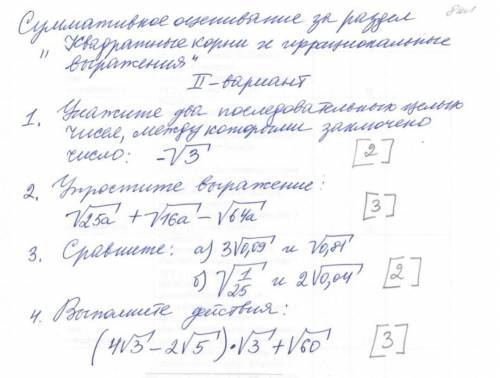 8 кл
Суммативное оценивание за раздел
"Квадратные корни и иррациональные
выражения"
II-вариант
1. Укажите два последовательных целых
числа, между которыми заключено
число: -√3 [2]
2. Упростите выражение:
√25a + √16a - √64a [3]
3. Сравните: а) 3√0,09 и √0,81
б) √1/25 и 2√0,04 [2]
4. Выполните действия:
(4√3 - 2√5)·√3 + √60 [3]